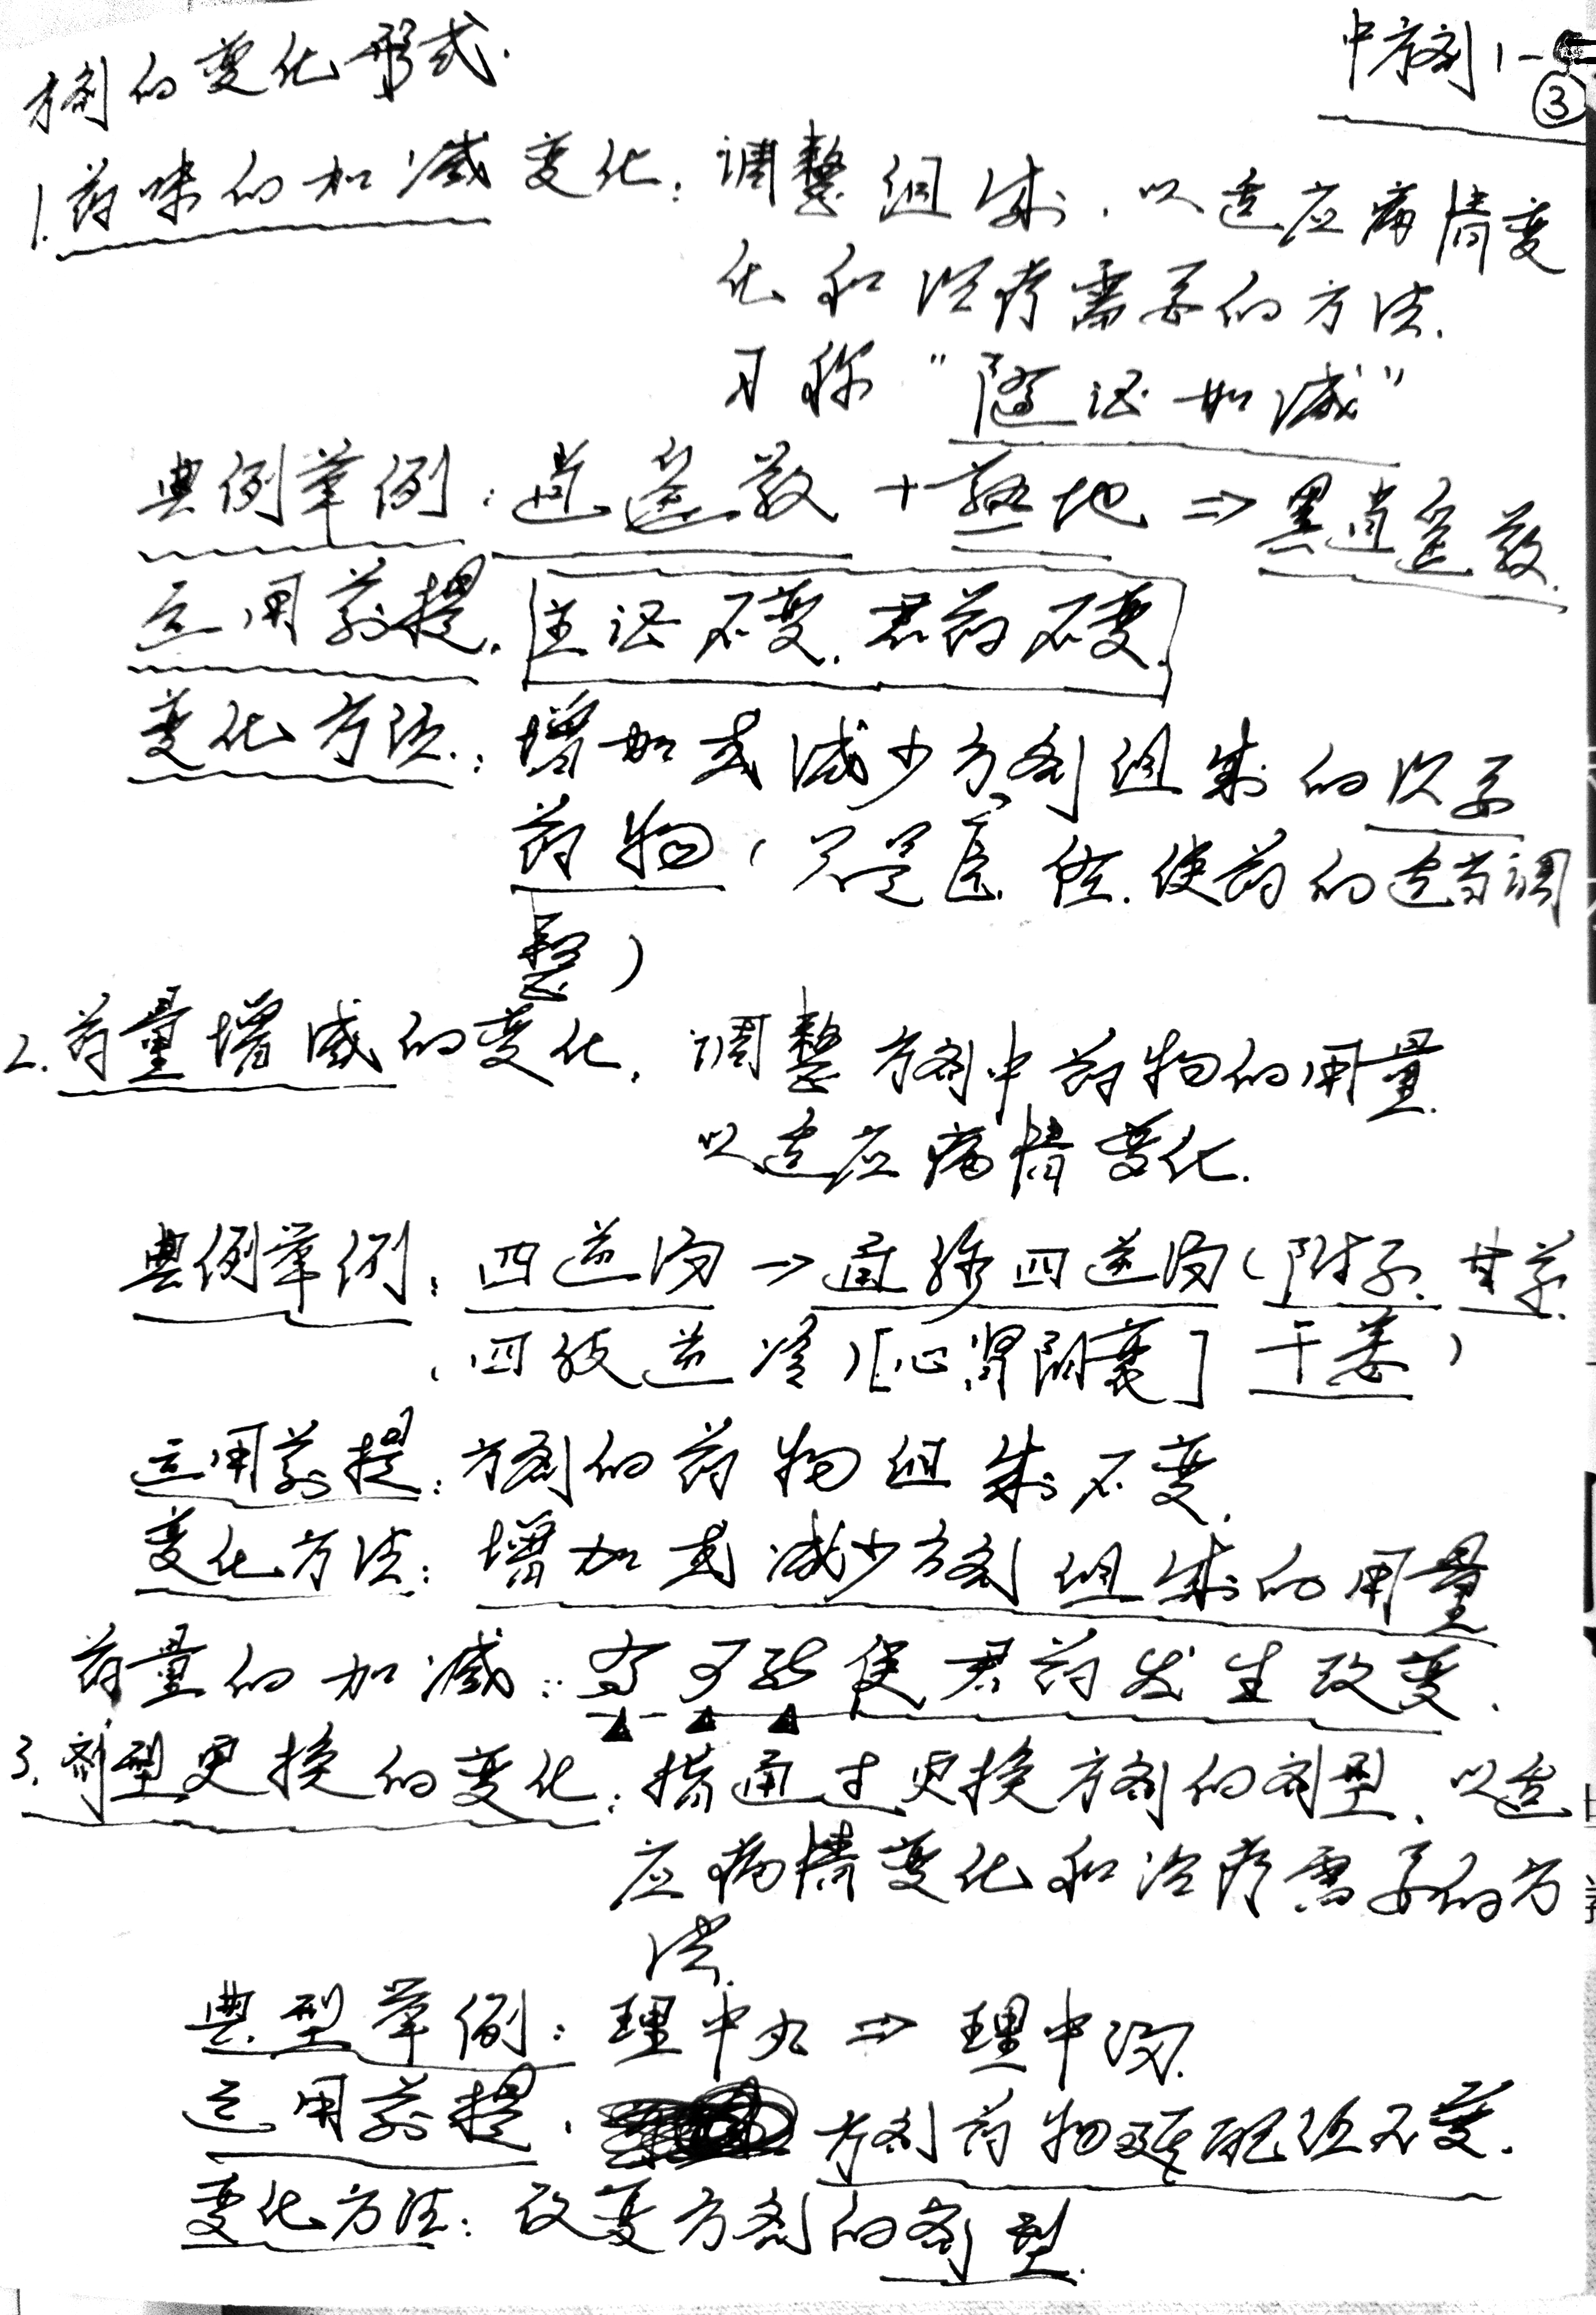 方剂的变化形式.
中方剂1-5
③
1.药味的加减变化:调整组成,以适应病情变
化和治疗需要的方法.
习称"随证加减"
典例举例:逍遥散+熟地⇒黑逍遥散.
运用前提.主证不变.君药不变.
变化方法:增加或减少方剂组成的次要
药物(只是臣.佐.使药的适当调
整)
2.药量增减的变化,调整方剂中药物的用量.
以适应病情变化.
典例举例:四逆汤→通脉四逆汤(附子.甘草.
(四肢逆冷)[心肾阴衰]干姜)
运用前提:方剂的药物组成不变.
变化方法:增加或减少方剂组成的用量
药量的加减:有可能使君药发生改变.
3.剂型更换的变化:指通过更换方剂的剂型.以适
应病情变化和治疗需要的方
法.
典型举例:理中丸⇒理中汤.
运用前提. 方剂药物配伍不变.
变化方法:改变方剂的剂型.